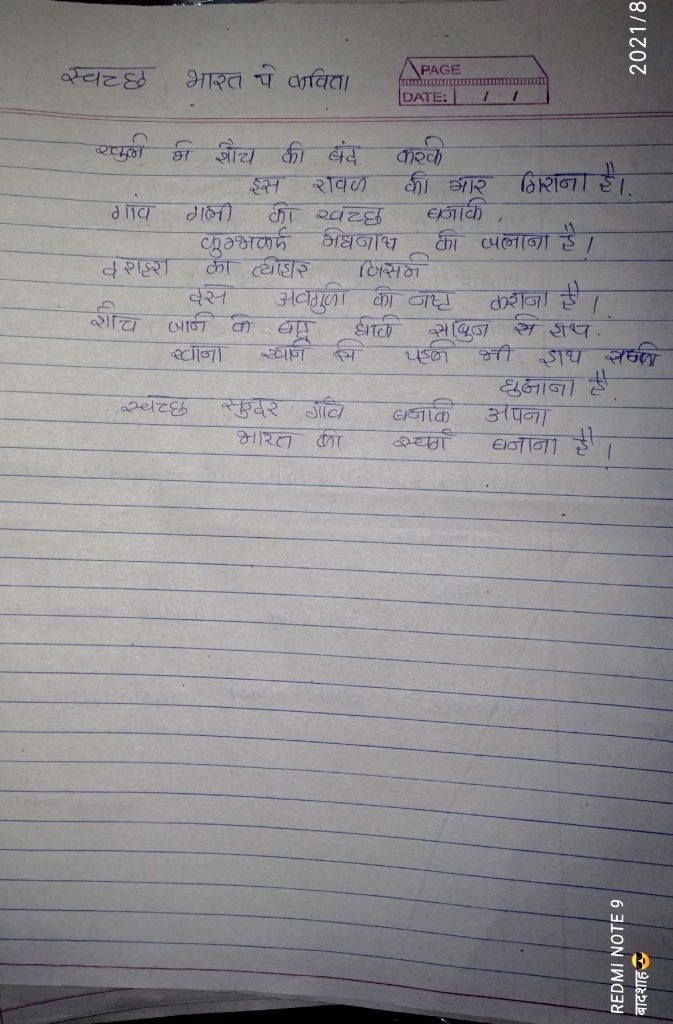 स्वच्छ भारत पे कविता
PAGE
DATE: / /
खुले मे शौच को बंद करके
इस रावण को मार गिराना है।
गांव गली को स्वच्छ बनाके,
कुम्भकर्ण मेघनाथ को जलाना है।
दशहरा का त्योहार जिसमे
दस अवगुणो को नष्ट कराना है।
शौच जाने के बाद धोके साबुन से हाथ.
खाना खाने से पहले भी हाथ सबको
धुलाना है.
स्वच्छ सुन्दर गाँव बनाके अपना
भारत को स्वर्ग बनाना है।
2021/8
REDMI NOTE 9
बादशाह😎